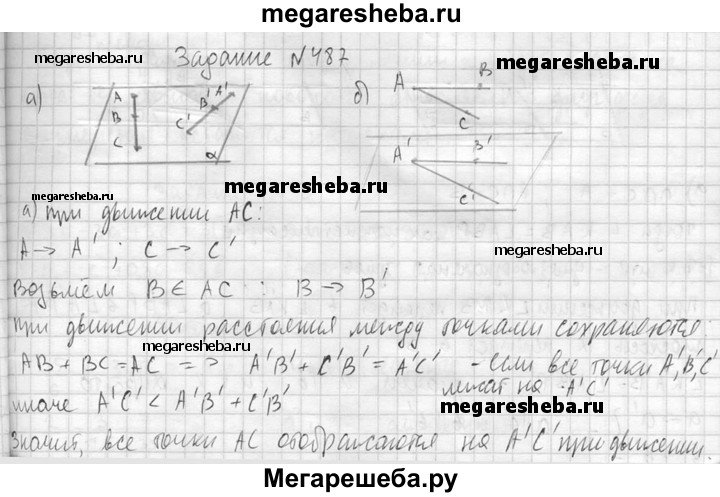 megaresheba.ru
megaresheba.ru
Задание №487
megaresheba.ru
а)
A
B
C
A'
B'
C'
α
б)
A
B
C
A'
B'
C'
megaresheba.ru
megaresheba.ru
а) При движении AC:
megaresheba.ru
A → A' ; C → C'
Возьмём B ∈ AC : B → B'
При движении расстояния между точками сохраняются:
megaresheba.ru
AB + BC = AC => A'B' + C'B' = A'C' - если все точки A', B', C'
лежат на A'C'
иначе A'C' < A'B' + C'B'
megaresheba.ru
Значит, все точки AC отображаются на A'C' при движении.
Мегарешеба.ру